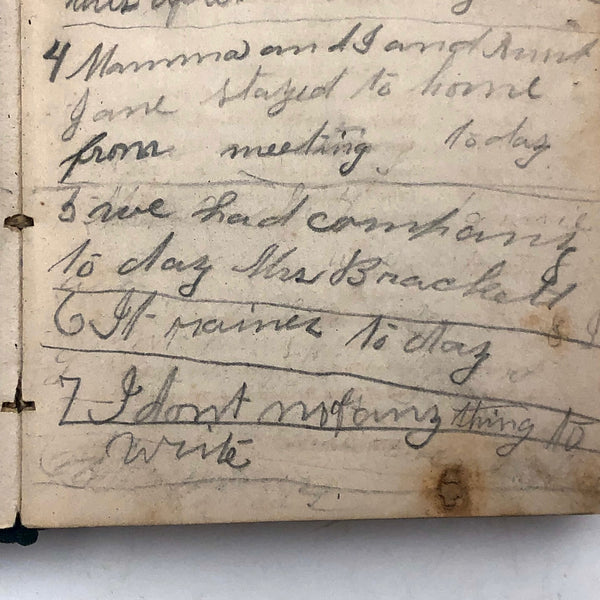 4 Mamma and I and Aunt
Jane stayed to home
from meeting today
5 we had company
to day Mrs Brackett
6 It raines to day
7 I dont not any thing to
write